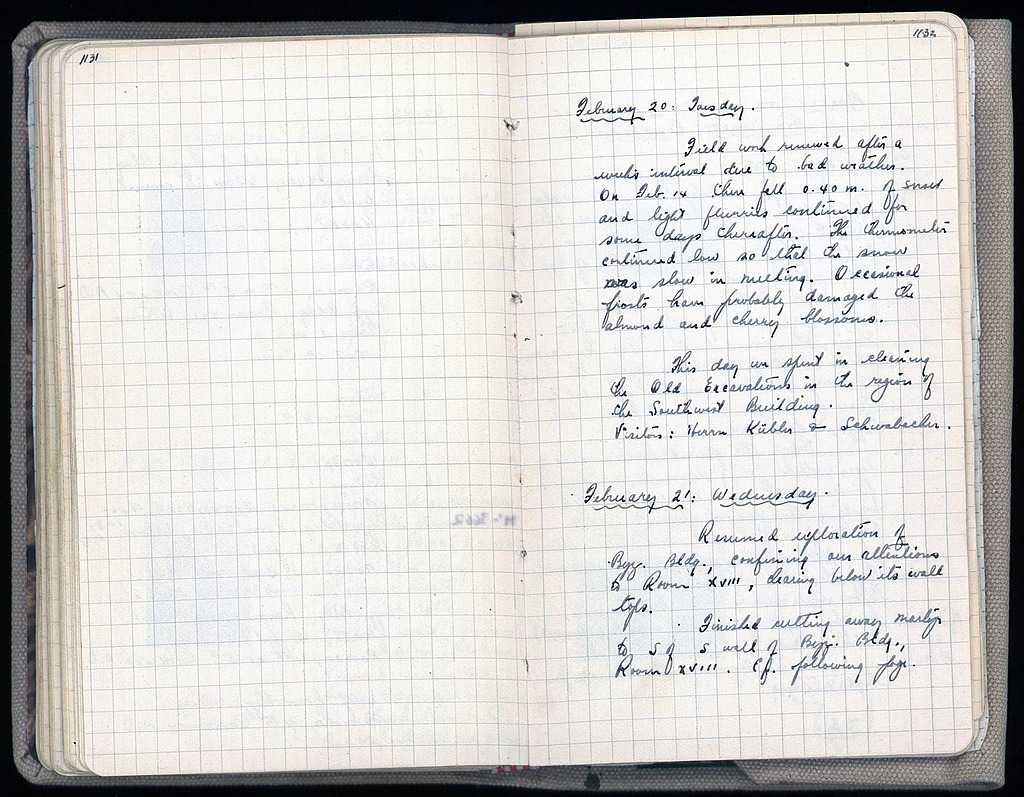 1131
1132
February 20: Tuesday.
Field work renewed after a
week's interval due to bad weather.
On Feb. 14 there fell 0.40 m. of snow
and light flurries continued for
some days thereafter. The thermometer
continued low so that the snow
was slow in melting. Occasional
frosts have probably damaged the
almond and cherry blossoms.
This day we spent in cleaning
the Old Excavations in the region of
the Southwest Building.
Visitors: Herrn Kübler & Schwabacher.
February 21: Wednesday.
Resumed exploration of
Byz. Bldg., confining our attentions
to Room XVIII, clearing below its wall
tops.
Finished cutting away
to S of S wall of Byz. Bldg.,
Room XVIII. Cf. following page.